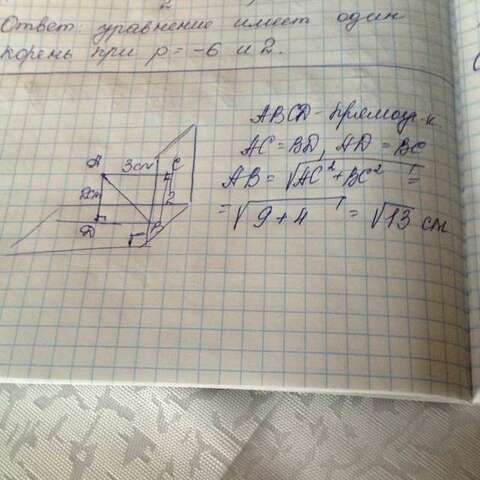 Ответ: уравнение имеет один
корень при p = -6 и 2.
ABCD - прямоуг-к
AC = BD, AD = BC
AB = √AC² + BC² =
= √9 + 4 = √13 см
A
3см
C
2см
2
D
B